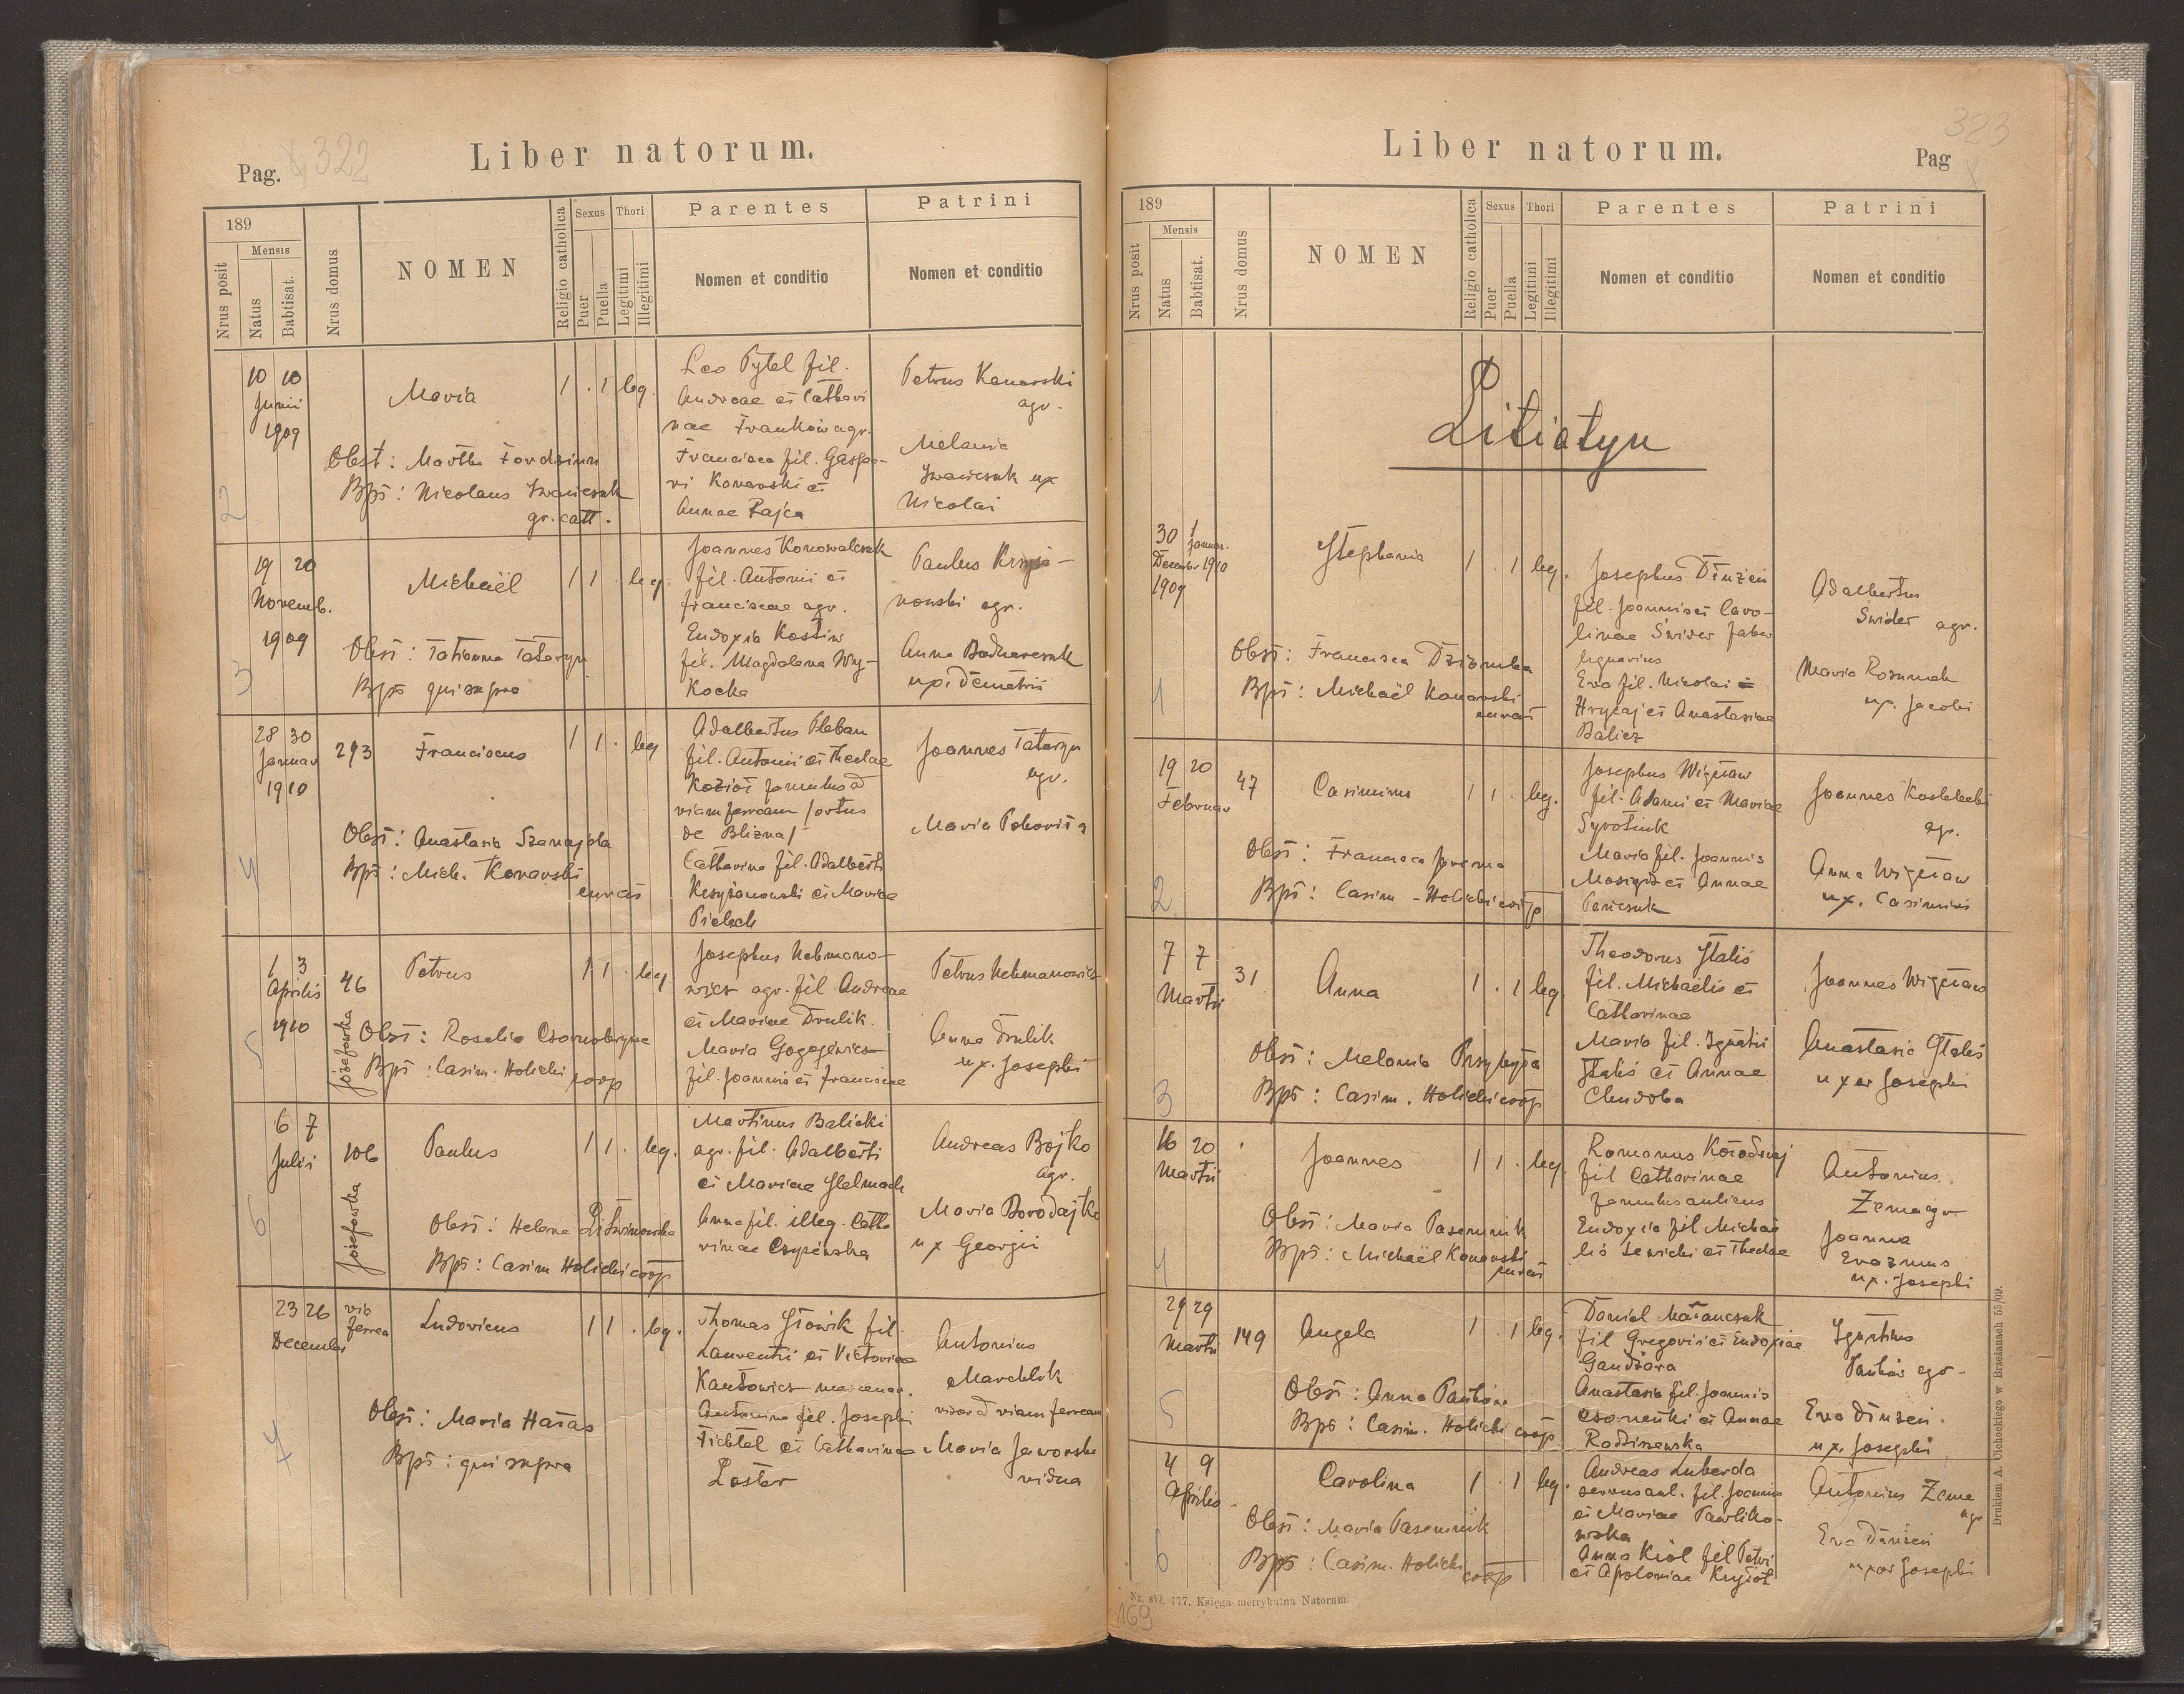 Pag. 322
Liber natorum.
189
Nrus posit
Mensis
Natus
Babtisat.
Nrus domus
NOMEN
Religio catholica
Sexus
Puer
Puella
Thori
Legitimi
Illegitimi
Parentes
Nomen et conditio
Patrini
Nomen et conditio
2
10 10
Junii
1909
Maria
1 . 1 leg.
Obst: Martha
Bpt: Nicolaus Iwańczuk
gr. cath.
Leo Pytel fil.
Andreae et Cathari
nae Franków agr.
Francisca fil. Gaspa-
ri Konarski et
Annae Zając
Petrus Konarski
agr.
Melania
Iwańczuk ux
Nicolai
3
19 20
Novemb.
1909
Michaël
1 1 . leg.
Obst: Tatianna Tataryn
Bpt qui supra
Joannes Konowalczuk
fil. Antonii et
Franciscae agr.
Eudoxia Kostiw
fil. Magdalena Wy-
Kocka
Paulus Krzyża-
nowski agr.
Anna Bodnarczuk
ux. Demetrii
4
28 30
Januar
1910
293
Franciscus
1 1 . leg
Obst: Anastasia Szanajda
Bpt: Mich. Konarski
curat
Adalbertus Pleban
fil. Antonii et Theclae
Kozioł famulus ad
viam ferream /ortus
de Blizna/
Catharina fil. Adalberti
Krzyżanowski et Mariae
Pielech
Joannes Tataryn
agr.
Maria
5
1 3
Aprilis
1910
46
Józefówka
Petrus
1 1 . leg
Obst: Rosalia
Bpt: Casim. Holicki
coop
Josephus Uchmano-
wicz agr. fil Andreae
et Mariae Drulik.
Maria
fil. Joannis et Franciscae
Petrus Uchmanowicz
Anna Drulik
ux. Josephi
6
6 7
Julii
106
Józefówka
Paulus
1 1 . leg.
Obst: Helena Litwinowska
Bpt: Casim Holicki coop
Martinus Balicki
agr. fil. Adalberti
et Mariae Stelmach
Anna fil. illeg. Catha
rinae
Andreas Bojko
agr.
Maria Borodajko
ux Georgii
7
23 26
Decembr
via
ferrea
Ludovicus
1 1 . leg.
Obst: Maria Hałas
Bpt: qui supra
Thomas Słowik fil.
Laurentii et Victoriae
Kantowicz
Antonina fil. Josephi
Fichtel et Catharinae
Loster
Antonius
Marchlik
ad viam ferream
Maria Jaworska
vidua
323
Liber natorum.
Pag
189
Nrus posit
Mensis
Natus
Babtisat.
Nrus domus
NOMEN
Religio catholica
Sexus
Puer
Puella
Thori
Legitimi
Illegitimi
Parentes
Nomen et conditio
Patrini
Nomen et conditio
Litiatyn
1
30 1
Januar.
Decembr 1910
1909
Stephania
1 . 1 leg.
Obst: Francisca Dziomba
Bpt: Michaël Konarski
curat
Josephus Dinzen
fil. Joannis et Caro-
linae Świder faber
lignarius
Eva fil. Nicolai
Hrycaj et Anastasiae
Balicz
Adalbertus
Świder agr.
Maria
ux. Jacobi
2
19 20
Februar
47
Casimirus
1 1 . leg.
Obst: Francisca
Bpt: Casim - Holicki coop
Josephus Więcław
fil. Adami et Mariae
Syrotiuk
Maria fil. Joannis
et Annae
Joannes
agr.
Anna Więcław
ux. Casimiri
3
7 7
Martii
31
Anna
1 . 1 leg
Obst: Melania Przybyła
Bpt: Casim. Holicki coop
Theodorus Staliś
fil. Michaelis et
Catharinae
Maria fil. Ignatii
Staliś et Annae
Chudoba
Joannes Więcław
Anastasia Staliś
uxor Josephi
4
16 20
Martii
Joannes
1 1 . leg
Obst: Maria Pasemnik
Bpt: Michaël Konarski
curat
Romanus Kołodziej
fil Catharinae
famulus aulicus
Eudoxia fil Michae
lis Lewicki et Theclae
Antonius
Zema agr.
Joanna
Erazmus
ux. Josephi
5
29 29
Martii
149
Angela
1 . 1 leg.
Obst: Anna
Bpt: Casim. Holicki coop
Daniel Małanczuk
fil Gregorii et Eudoxiae
Gandziara
Anastasia fil. Joannis
et Annae
Radziszewska
Ignatius
agr-
Eva Dinzen.
ux. Josephi
6
4 9
Aprilis
Carolina
1 . 1 leg.
Obst: Maria Pasemnik
Bpt: Casim. Holicki
coop
Andreas Luberda
servus aul. fil. Joannis
et Mariae Pawliko-
wska
Anna Kiol fil Petri
et Apoloniae
Antonius Zema
agr
Eva Dinzen
uxor Josephi
Drukiem A. Cichockiego w Brzeżanach 55/09.
Księga metrykalna Natorum.
169